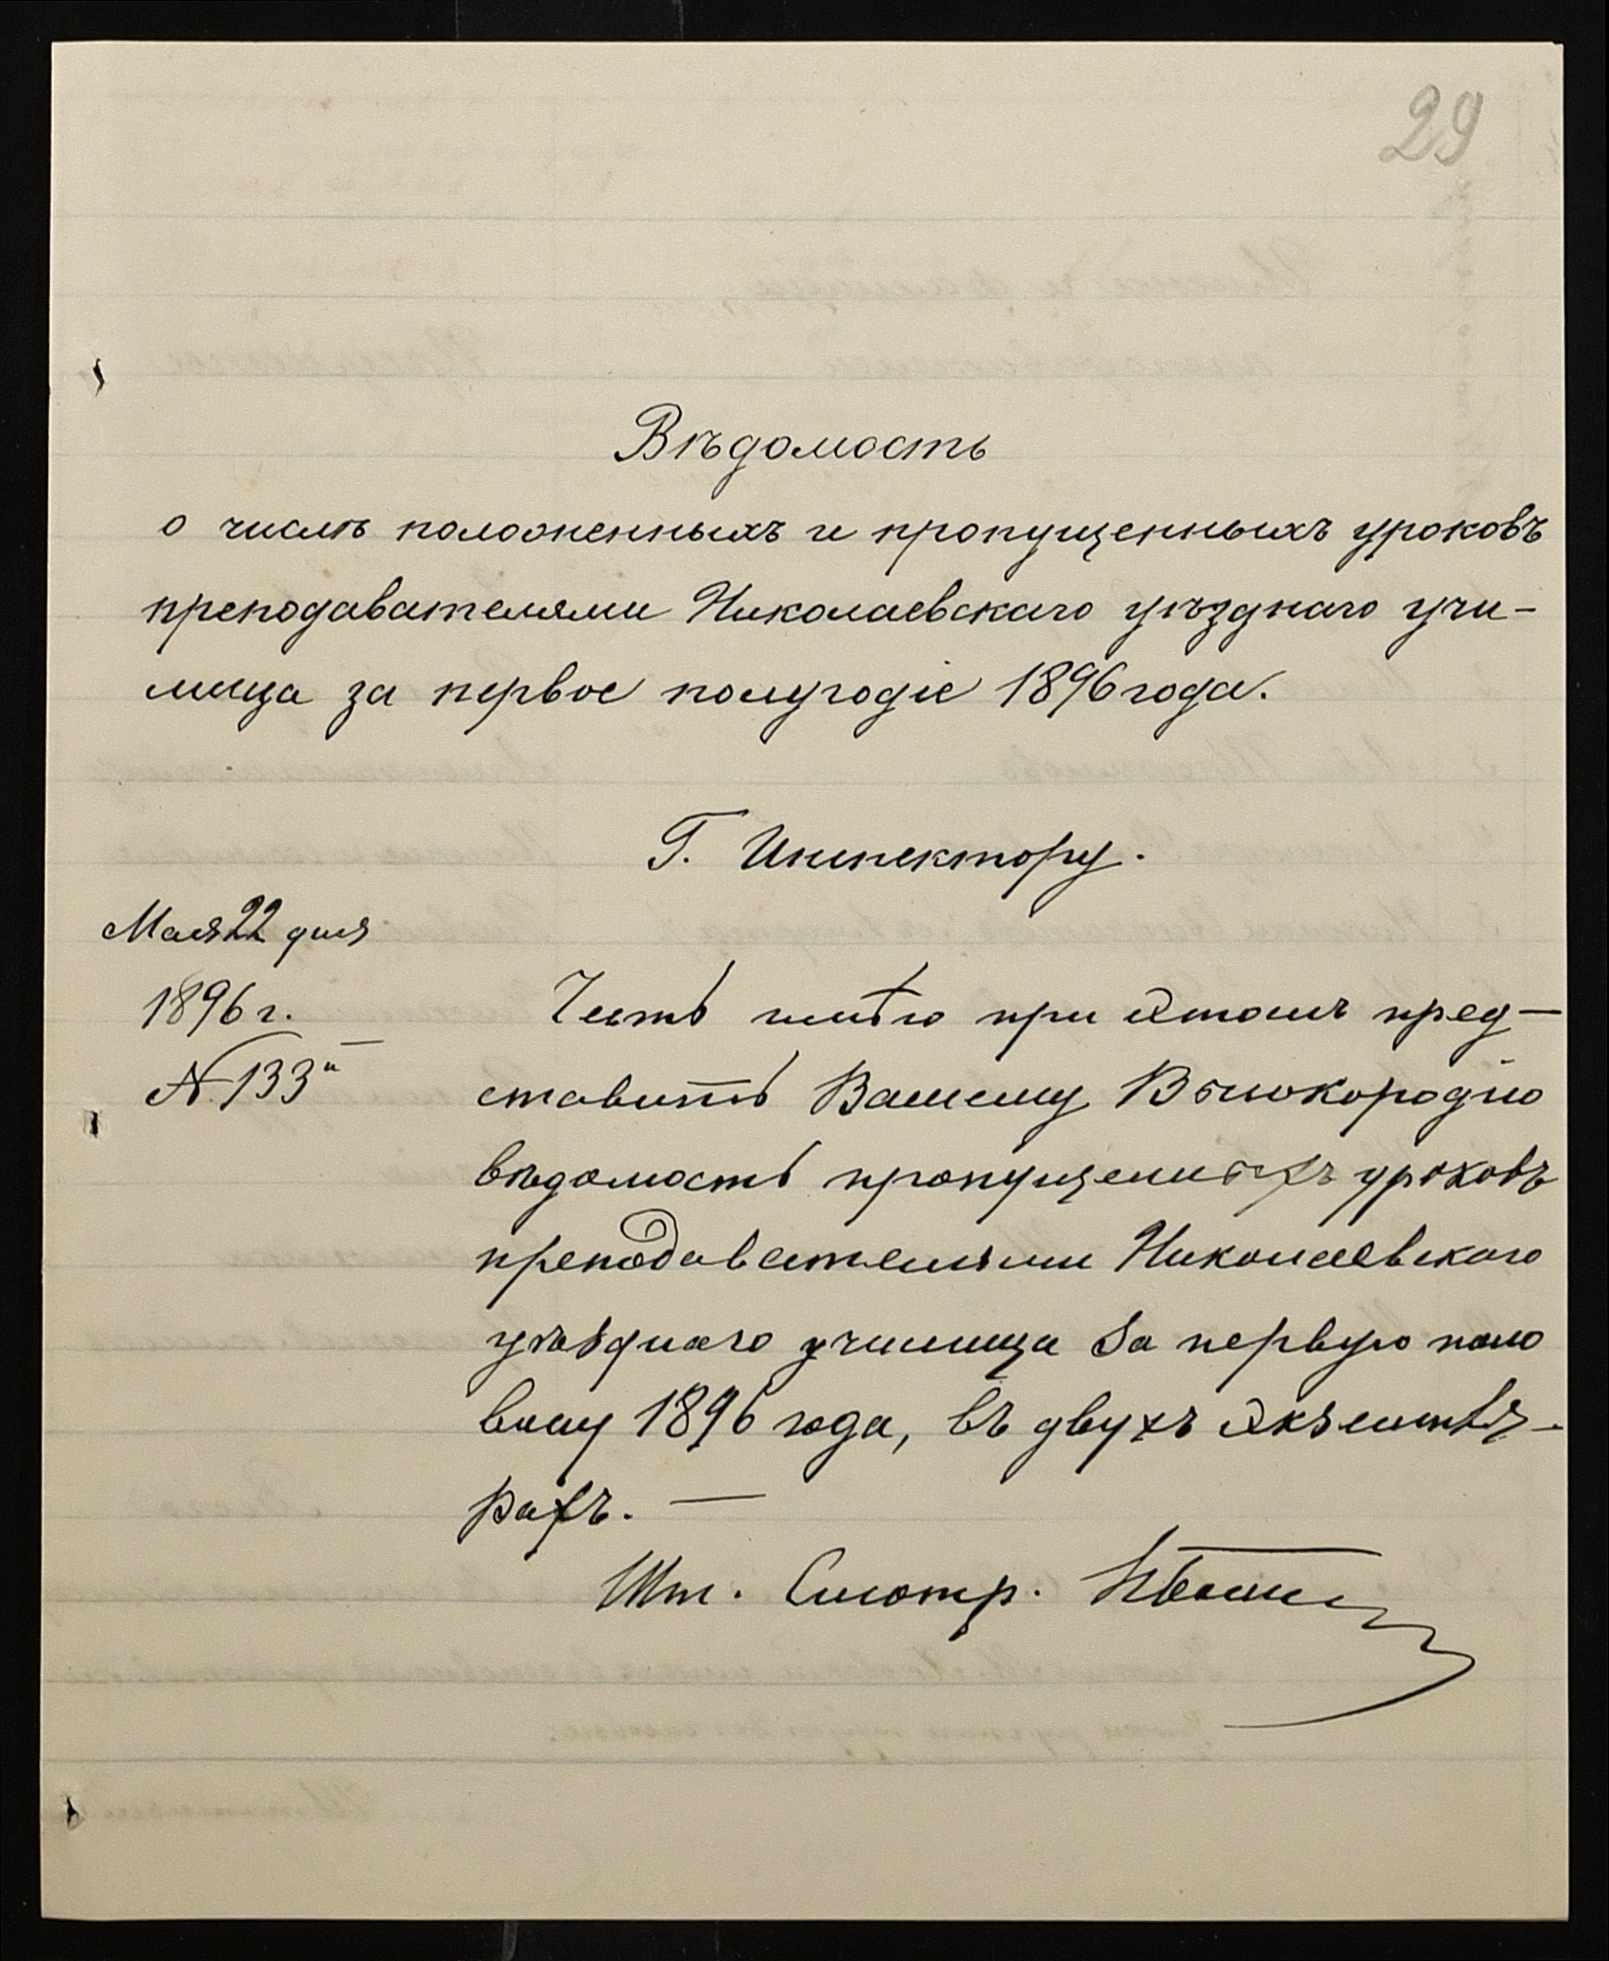 29
Вѣдомость
о числѣ положенныхъ и пропущенныхъ уроковъ
преподавателями Николаевскаго уѣзднаго учи-
лища за первое полугодіе 1896 года.
Г. Инспектору.
Мая 22 дня
1896 г.
№ 133
Честь имѣю при этомъ пред-
ставить Вашему Высокородію
вѣдомость пропущенныхъ уроковъ
преподавателями Николаевскаго
уѣзднаго училища за первую поло
вину 1896 года, въ двухъ экземпля-
рахъ. —
Шт. Смотр.